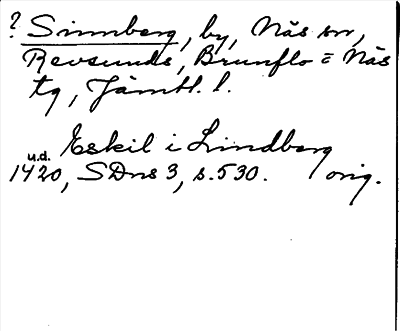 ? Sinnberg, by, Näs sn,
Revsunds, Brunflo = Näs
tg, Jämtl. l.
Eskil i Lindberg
u.d.
1420, SDns 3, s. 530. orig.